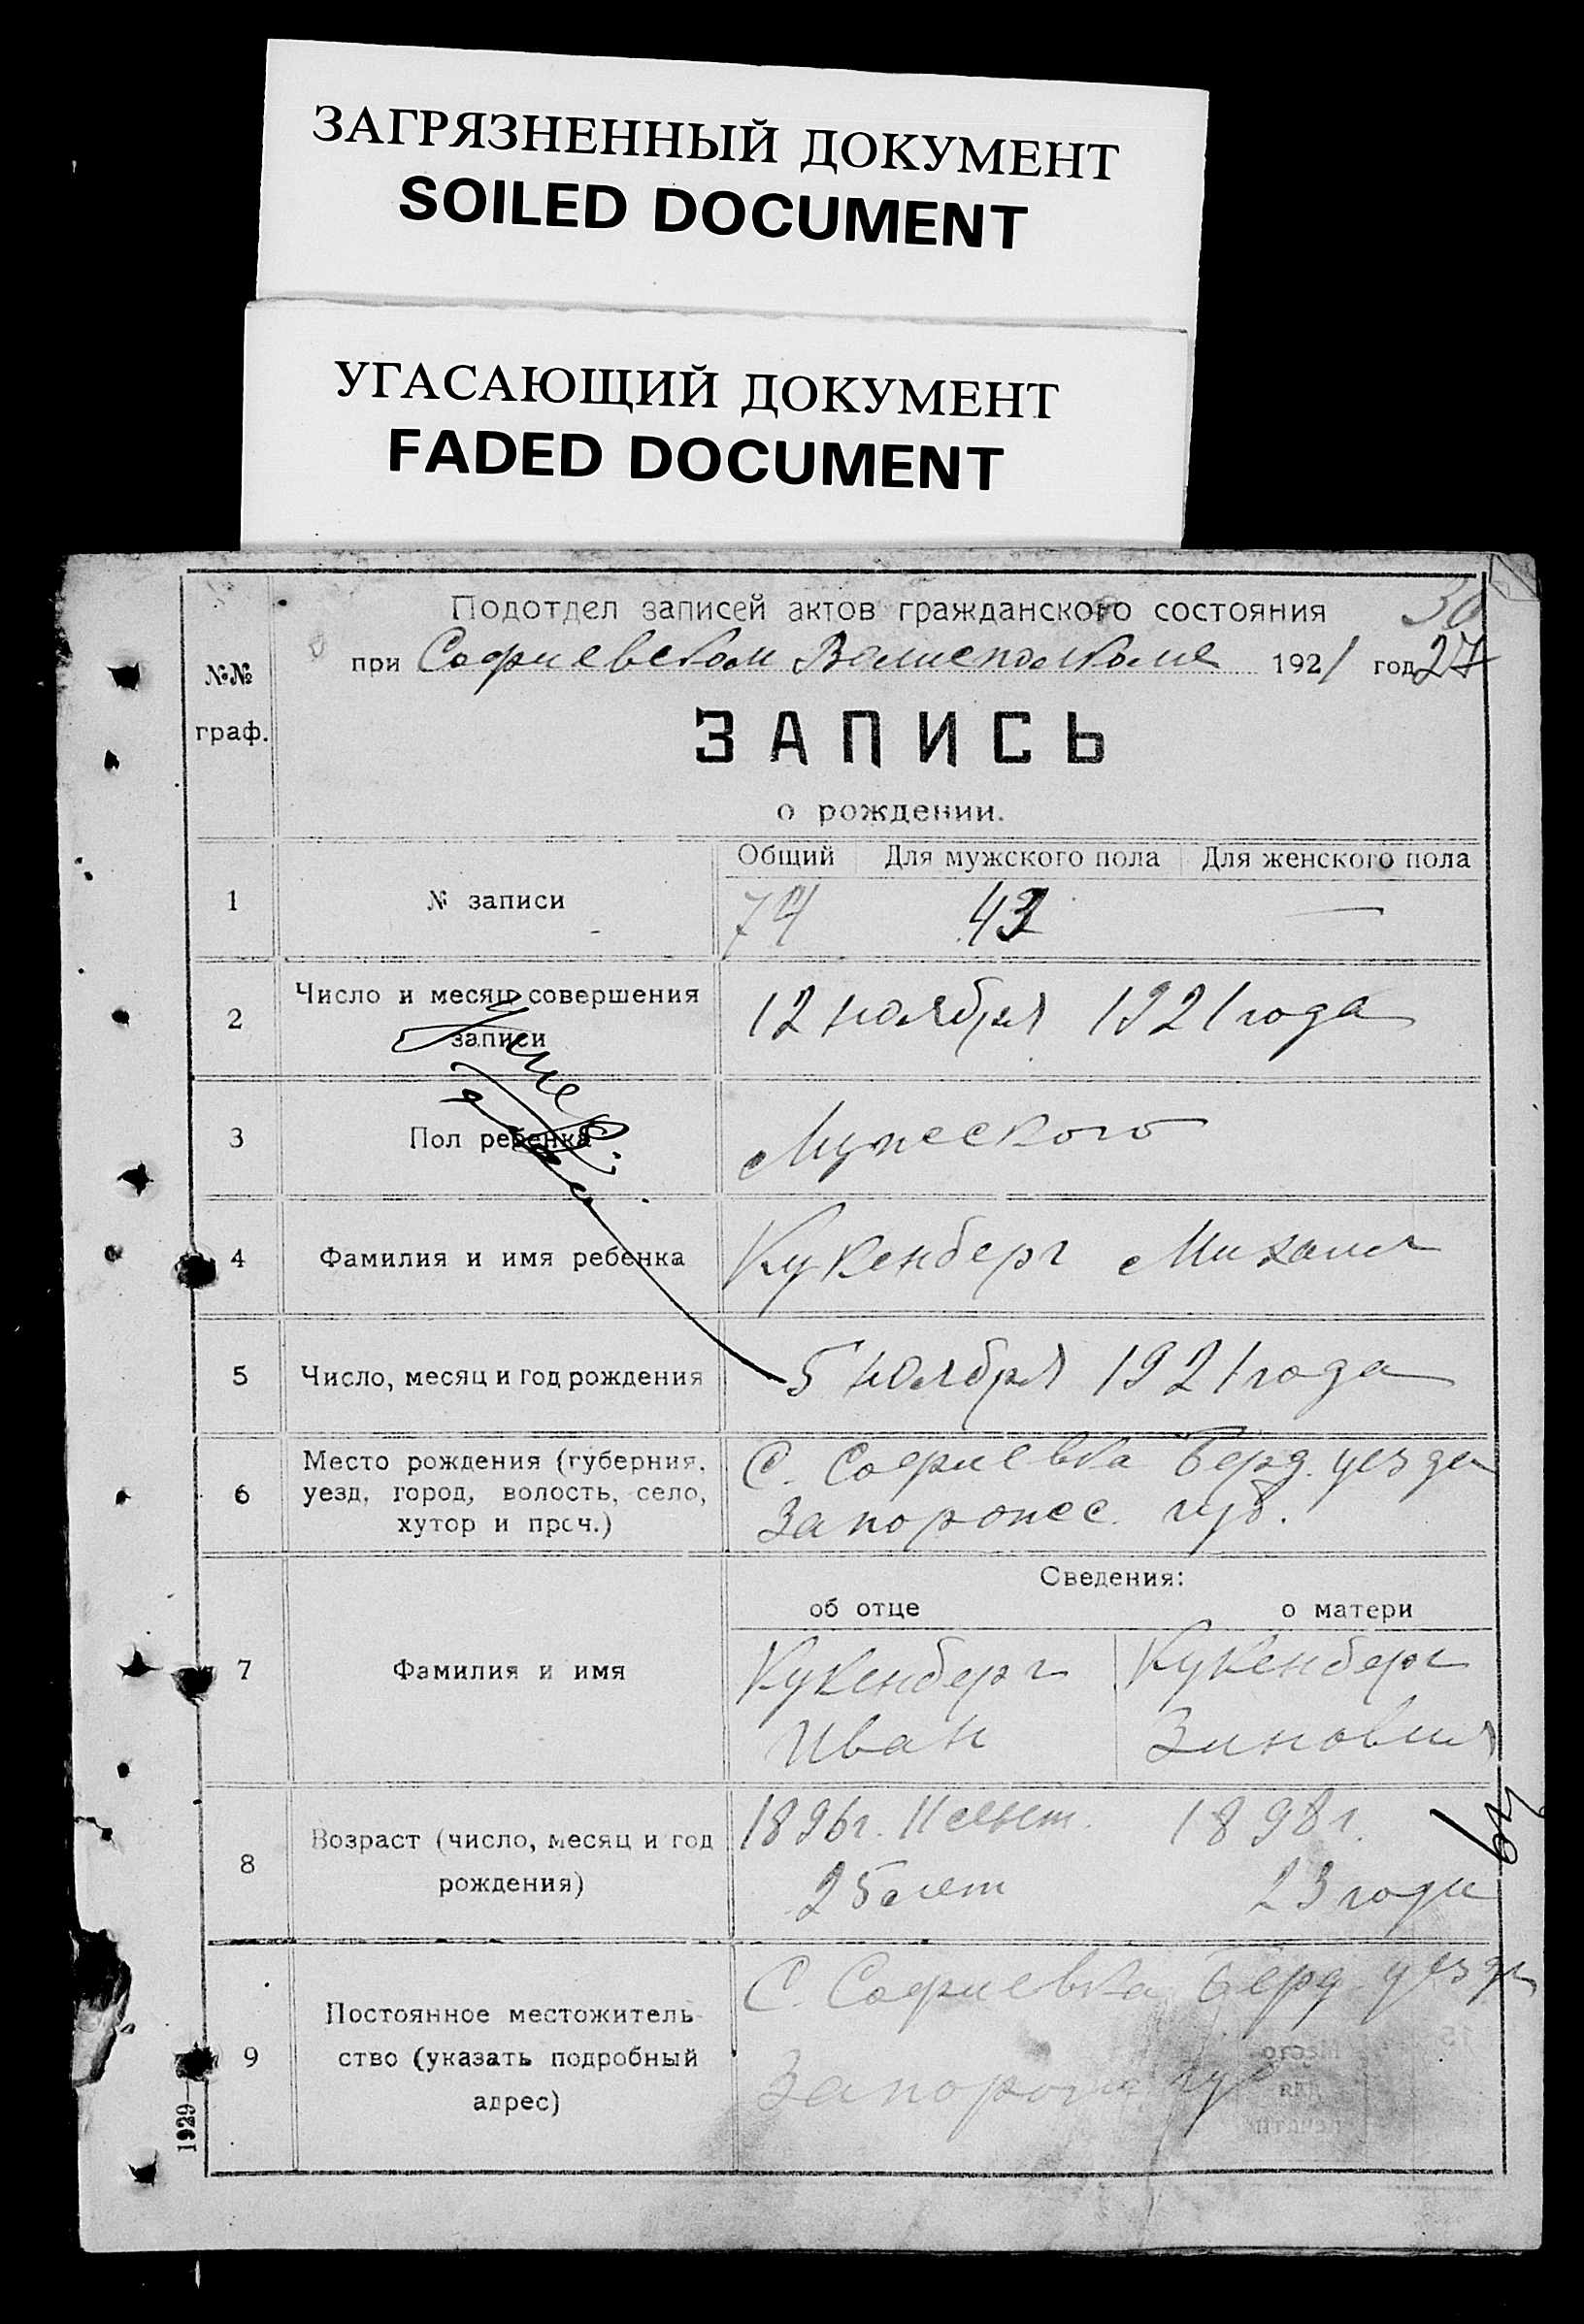 ЗАГРЯЗНЕННЫЙ ДОКУМЕНТ
SOILED DOCUMENT
УГАСАЮЩИЙ ДОКУМЕНТ
FADED DOCUMENT
30
Подотдел записей актов гражданского состояния
при Софиевском Волисполкоме 1921 год 27
№№ граф.
ЗАПИСЬ
о рождении.
Общий Для мужского пола Для женского пола
1 № записи 74 43 —
2 Число и месяц совершения записи 12 ноября 1921 года
3 Пол ребенка Мужеского
4 Фамилия и имя ребенка Кукенберг Михаил
5 Число, месяц и год рождения 5 ноября 1921 года
6 Место рождения (губерния, уезд, город, волость, село, хутор и проч.) С. Софиевка Берд. уезда
Запорожс. губ.
Сведения:
об отце о матери
7 Фамилия и имя Кукенберг Кукенберг
Иван Зиновия
8 Возраст (число, месяц и год рождения) 1896 г. 1898 г.
25 лет 23 годи
9 Постоянное местожительство (указать подробный адрес) С. Софиевка Берд. уезда
Запорож. гу
1929